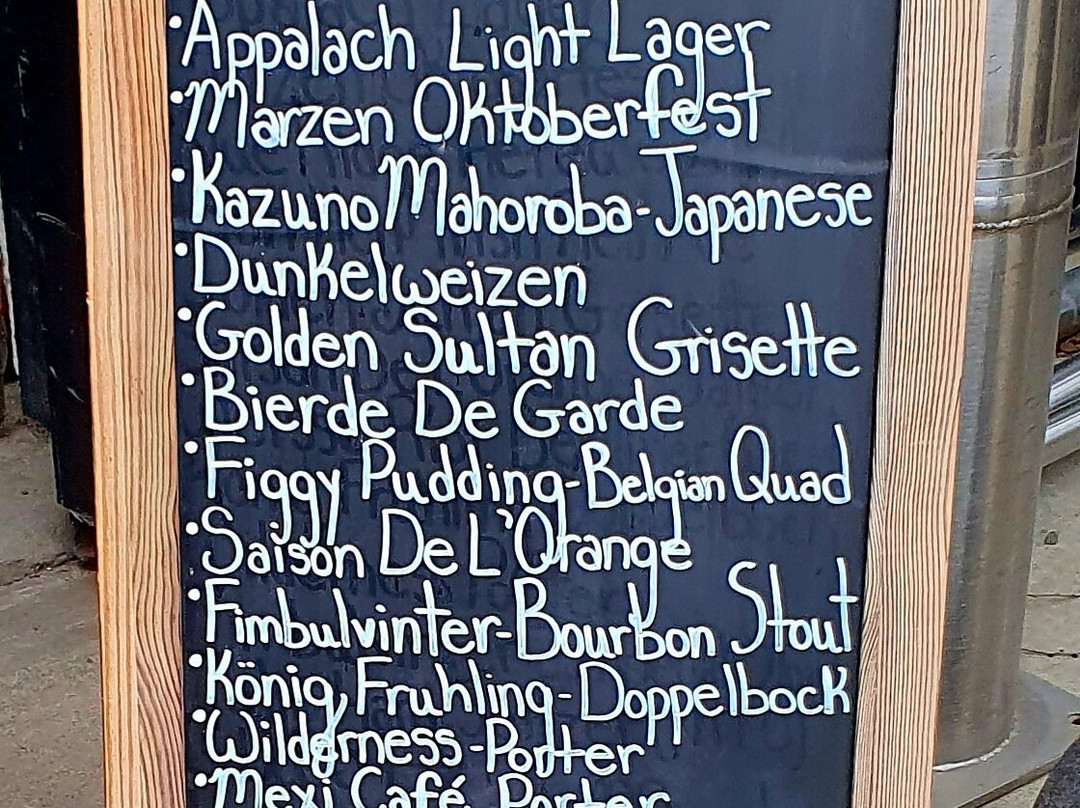 •Appalach Light Lager
•Marzen Oktoberfest
•Kazuno Mahoroba-Japanese
•Dunkelweizen
•Golden Sultan Grisette
•Bierde De Garde
•Figgy Pudding-Belgian Quad
•Saison De L'Orange
•Fimbulvinter-Bourbon Stout
•König Fruhling-Doppelbock
•Wilderness-Porter
•Mexi Café Porter